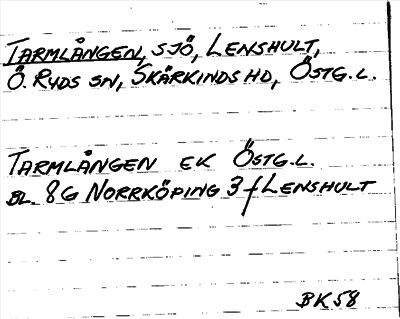 TARMLÅNGEN, SJÖ, LENSHULT,
Ö. RYDS SN, SKÄRKINDS HD, ÖSTG.L.
TARMLÅNGEN EK ÖSTG.L.
BL. 8G NORRKÖPING 3f LENSHULT
BK 58